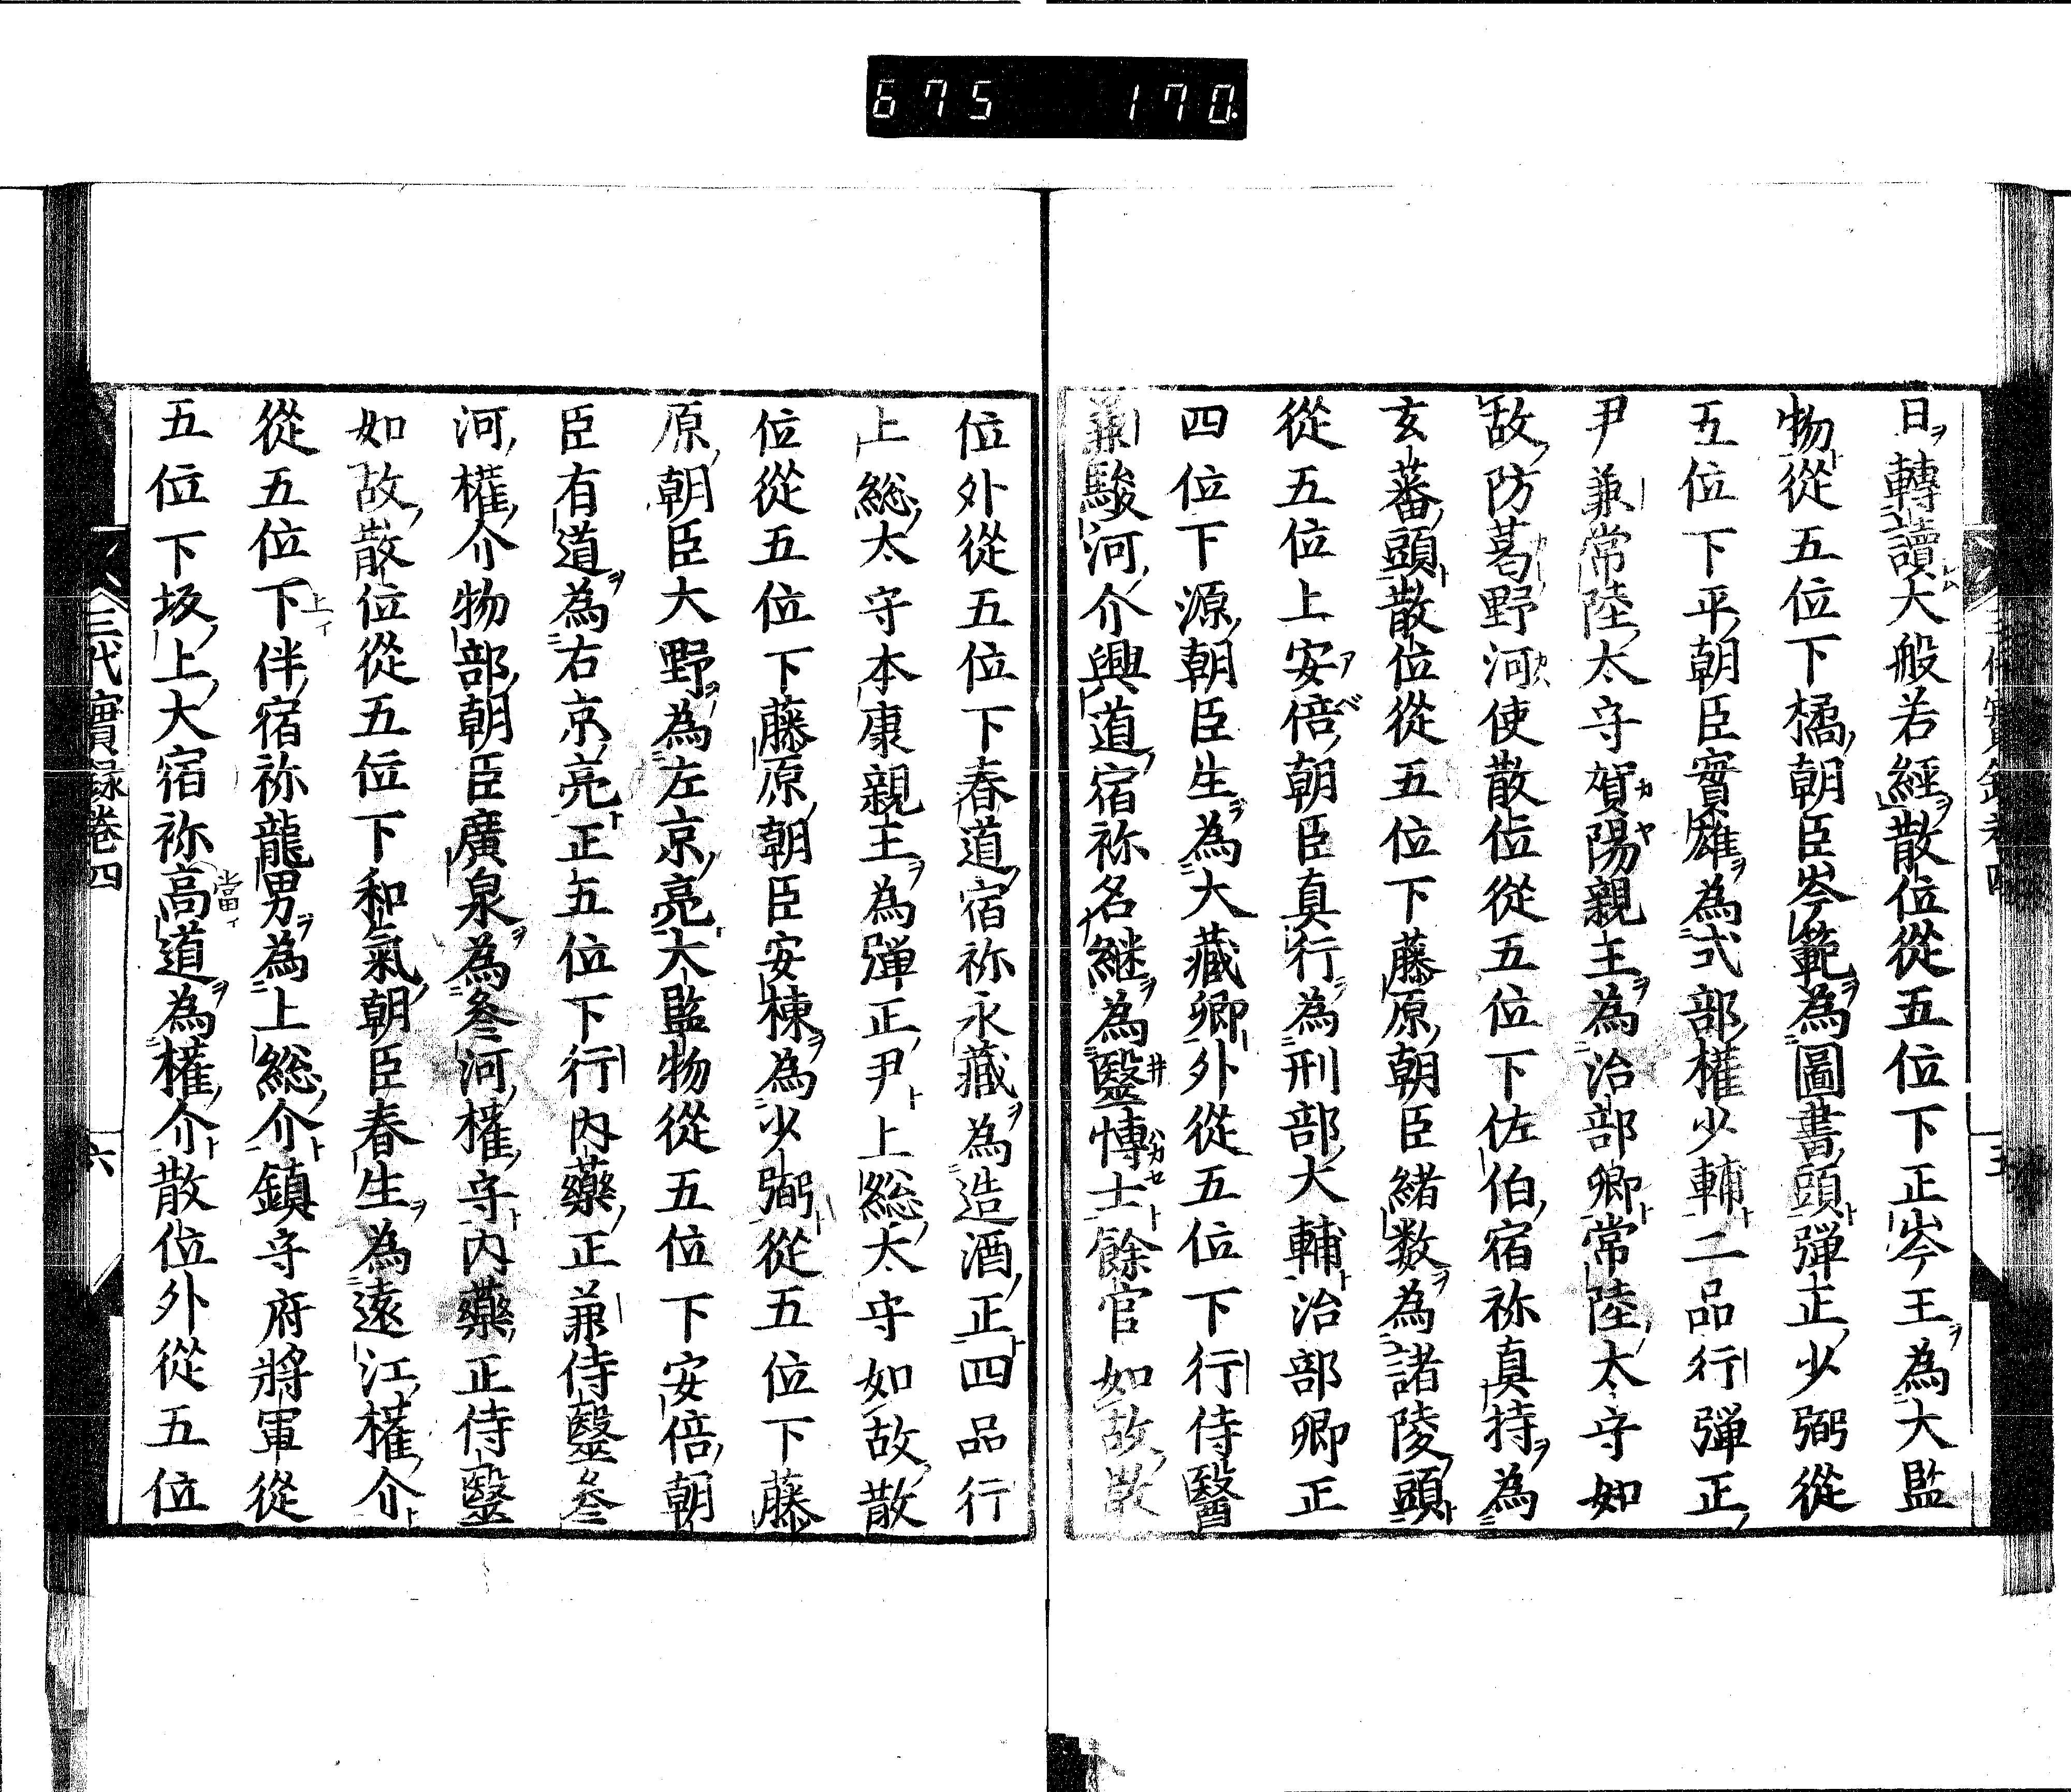 675 170
日轉讀大般若經散位從五位下正岑王為大監
物從五位下橘朝臣岑範為圖書頭彈正少弼從
五位下平朝臣實雄為式部權少輔二品行彈正
尹兼常陸太守賀陽親王為治部卿常陸太守如
故防葛野河使散位從五位下佐伯宿祢真持為
玄蕃頭散位從五位下藤原朝臣緒数為諸陵頭
從五位上安倍朝臣真行為刑部大輔治部卿正
四位下源朝臣生為大藏卿外從五位下行侍醫
兼駿河介興道宿祢名継為醫博士餘官如故散
位外從五位下春道宿祢永藏為造酒正四品行
上総太守本康親王為彈正尹上総太守如故散
位從五位下藤原朝臣安棟為少弼從五位下藤
原朝臣大野為左京亮大監物從五位下安倍朝
臣有道為右京亮正五位下行内藥正兼侍醫参
河權介物部朝臣廣泉為参河權守内藥正侍醫
如故散位從五位下和氣朝臣春生為遠江權介
從五位下伴宿祢龍男為上総介鎮守府將軍從
上イ
五位下坂上大宿祢高道為權介散位外從五位
當イ
三代實録卷四
六